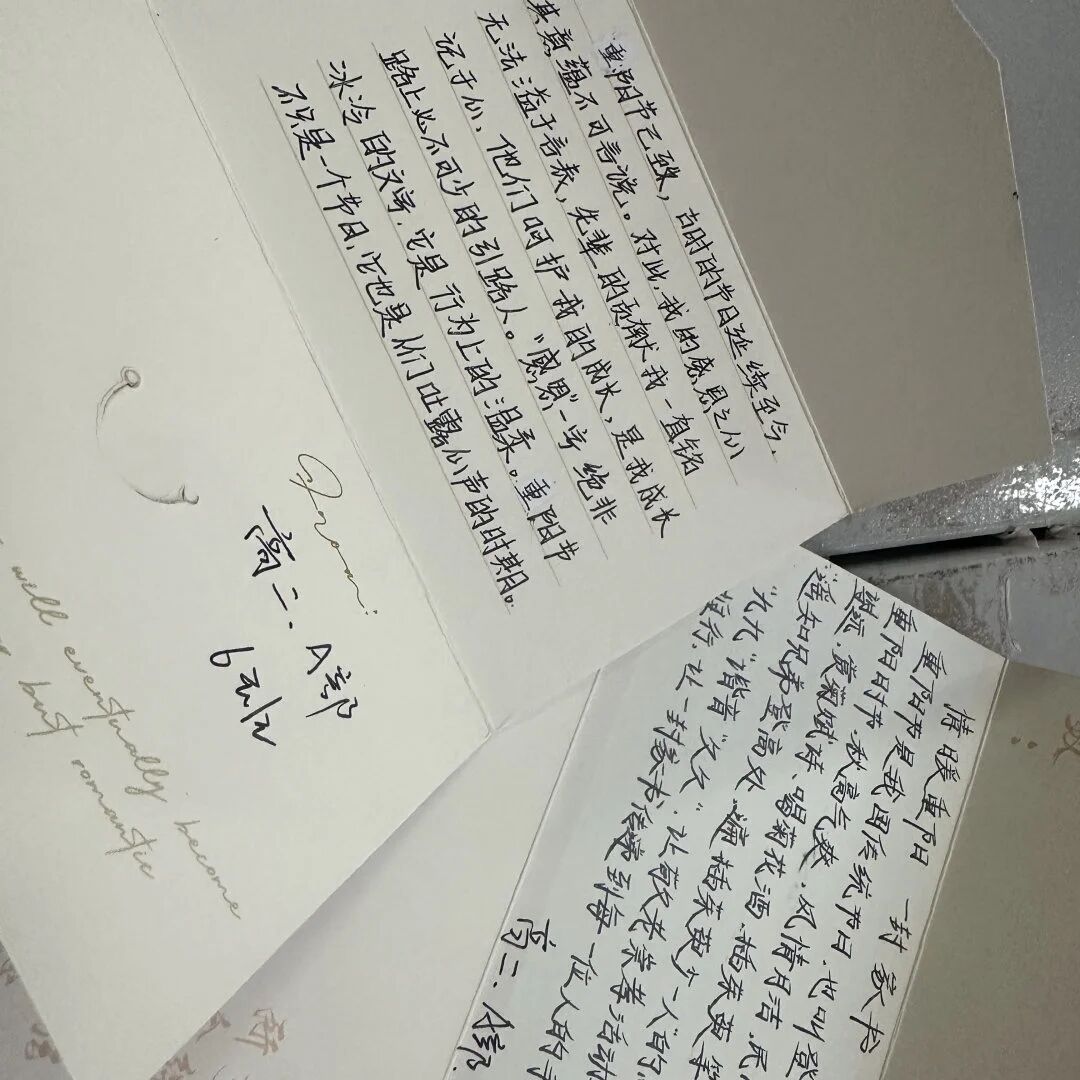 重阳节已致，古时的节日延续至今，
其意蕴不可言说。对此，我的感恩之心
无法溢于言表，先辈的贡献我一直铭
记于心，他们呵护我的成长，是我成长
路上必不可少的引路人。“感恩”一字绝非
冰冷的文字，它是行为上的温柔。重阳节
不只是一个节日，它也是人们吐露心声的时期。
高二·A部
will eventually become
best romantic
情暖重阳 一封家书
重阳节是我国传统节日，也叫登
重阳时节，秋高气爽，风清月洁，
登远，赏菊赋诗、喝菊花酒、插茱萸等
“遥知兄弟登高处，遍插茱萸少一人”的
“九九”谐音“久久”，让敬老崇孝活动
让一封家书传递到每一位人的手
高二·A部